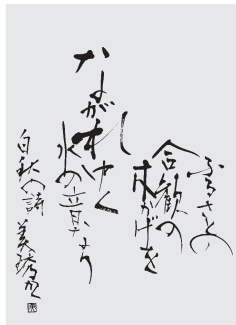 ふるさとの
合歓の
木かげを
ながれゆく
水の音なり
白秋の詩